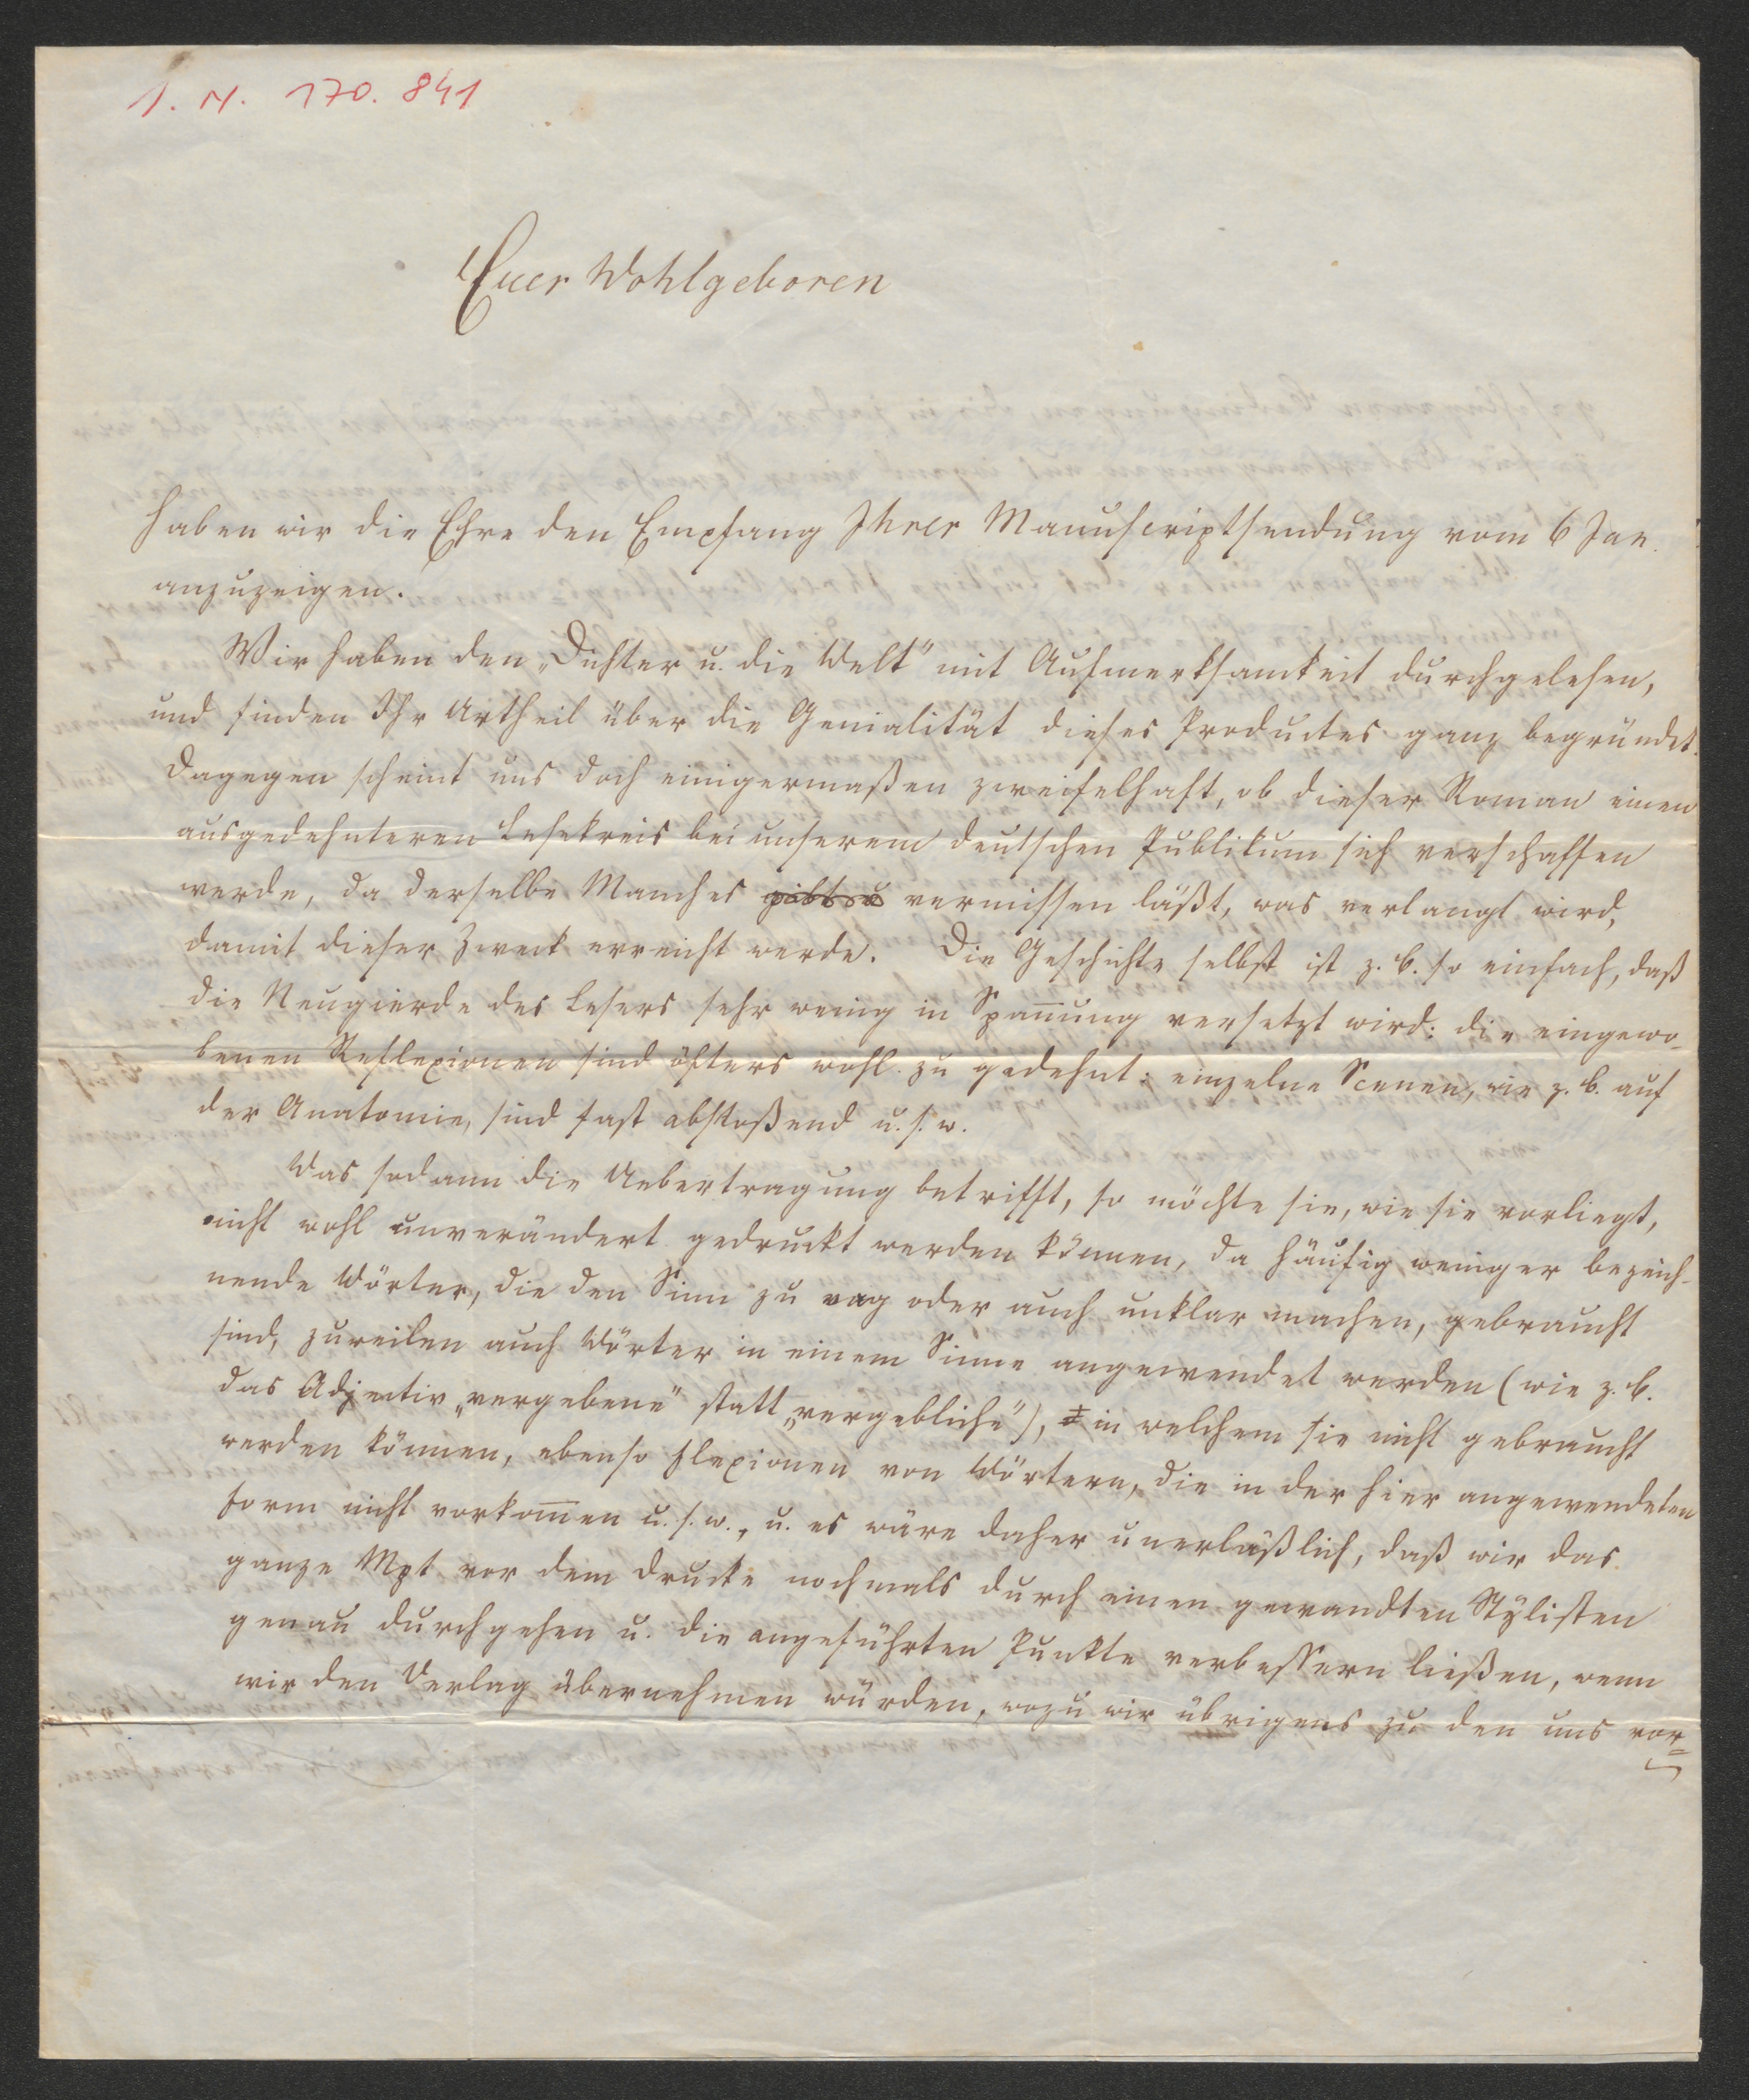 I. N. 170.841
Euer Wohlgeboren
haben wir die Ehre den Empfang Ihrer Manuscriptsendung vom 6 Jan.
anzuzeigen.
Wir haben den „Dichter u. die Welt" mit Aufmerksamkeit durchgelesen,
und finden Ihr Urtheil über die Genialität dieses Productes ganz begründet.
Dagegen scheint uns doch einigermaßen zweifelhaft, ob dieser Roman einen
ausgedehnteren Lesekreis bei unserem deutschen Publikum sich verschaffen
werde, da derselbe Manches gibt u vermissen läßt, was verlangt wird,
damit dieser Zweck erreicht werde. Die Geschichte selbst ist z. b. so einfach, daß
die Neugierde des Lesers sehr wenig in Spañung versetzt wird: die eingewo-
benen Reflexionen sind öfters wohl zu gedehnt: einzelne Scenen, wie z. b. auf
der Anatomie, sind fast abstoßend u. s. w.
Was sodann die Uebertragung betrifft, so möchte sie, wie sie vorliegt,
nicht wohl unverändert gedruckt werden können, da häufig weniger bezeich-
nende Wörter, die den Sinn zu vag oder auch unklar machen, gebraucht
sind, zuweilen auch Wörter in einem Sinne angewendet werden (wie z. b.
das Adjectiv „vergebene" statt „vergebliche"), in welchem sie nicht gebraucht
werden können, ebenso Flexionen von Wörtern, die in der hier angewendeten
Form nicht vorkom̄en u. s. w., u. es wäre daher unerläßlich, daß wir das
ganze Mpt vor dem Drucke nochmals durch einen gewandten Stylisten
genau durchgehen u. die angeführten Punkte verbessern ließen, wenn
wir den Verlag übernehmen würden, wozu wir übrigens zu den uns vor=